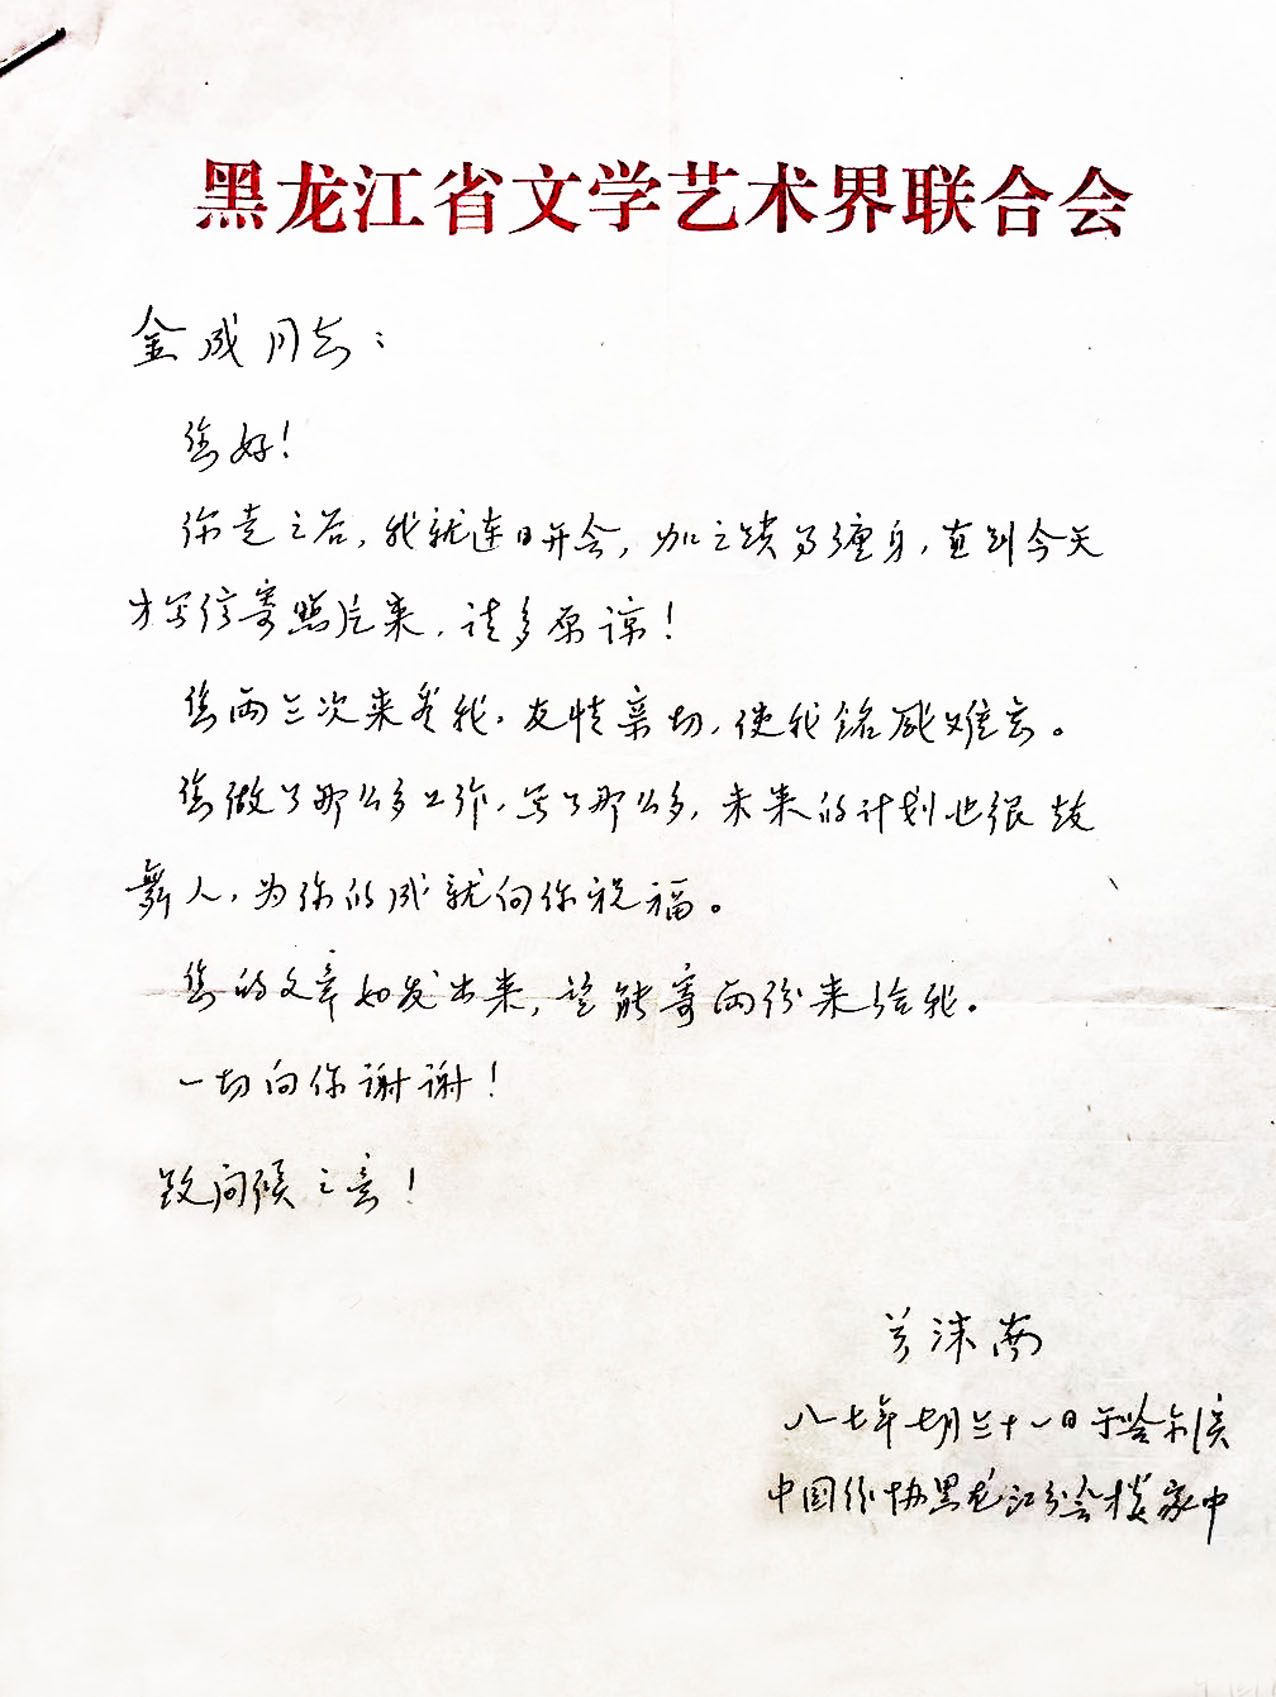 黑龙江省文学艺术界联合会
金成同志：
您好！
你走之后，我就连日开会，加之琐事缠身，直到今天
才写信寄照片来，请多原谅！
您两三次来看我，友情亲切，使我铭感难忘。
您做了那么多工作，写了那么多，未来的计划也很鼓
舞人，为你的成就向你祝福。
您的文章如发出来，望能寄两份来给我。
一切向你谢谢！
致问候之意！
关沫南
八七年七月三十一日于哈尔滨
中国作协黑龙江分会楼家中